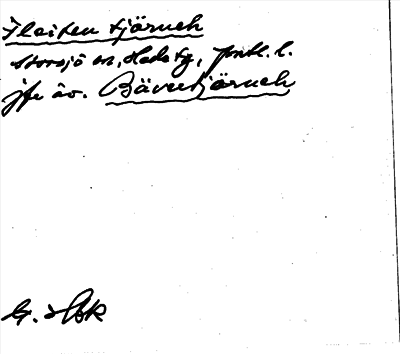 Fleiten tjärneh
Storsjö sn, Heds tg, Jmtl. l.
jfr äv. Bävertjärneh
G.